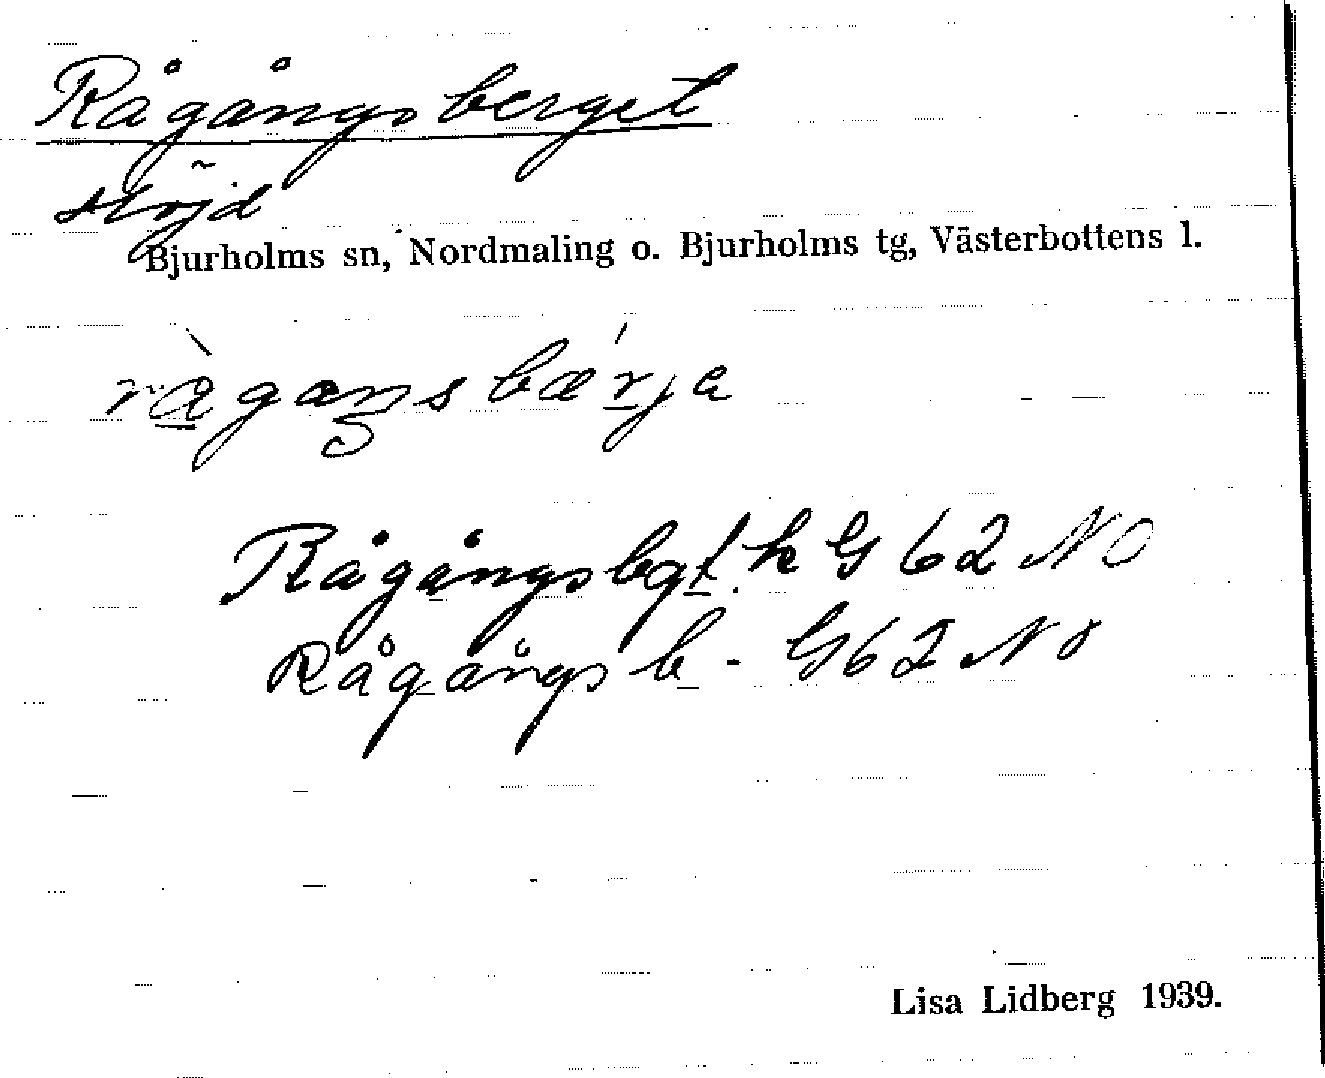 Rågångsberget
slöjd
Bjurholms sn, Nordmaling o. Bjurholms tg, Västerbottens l.
rågaŋsbærja
Rågångsbgt. k G 62 NO
Rågångsb - G62 NO
Lisa Lidberg 1939.